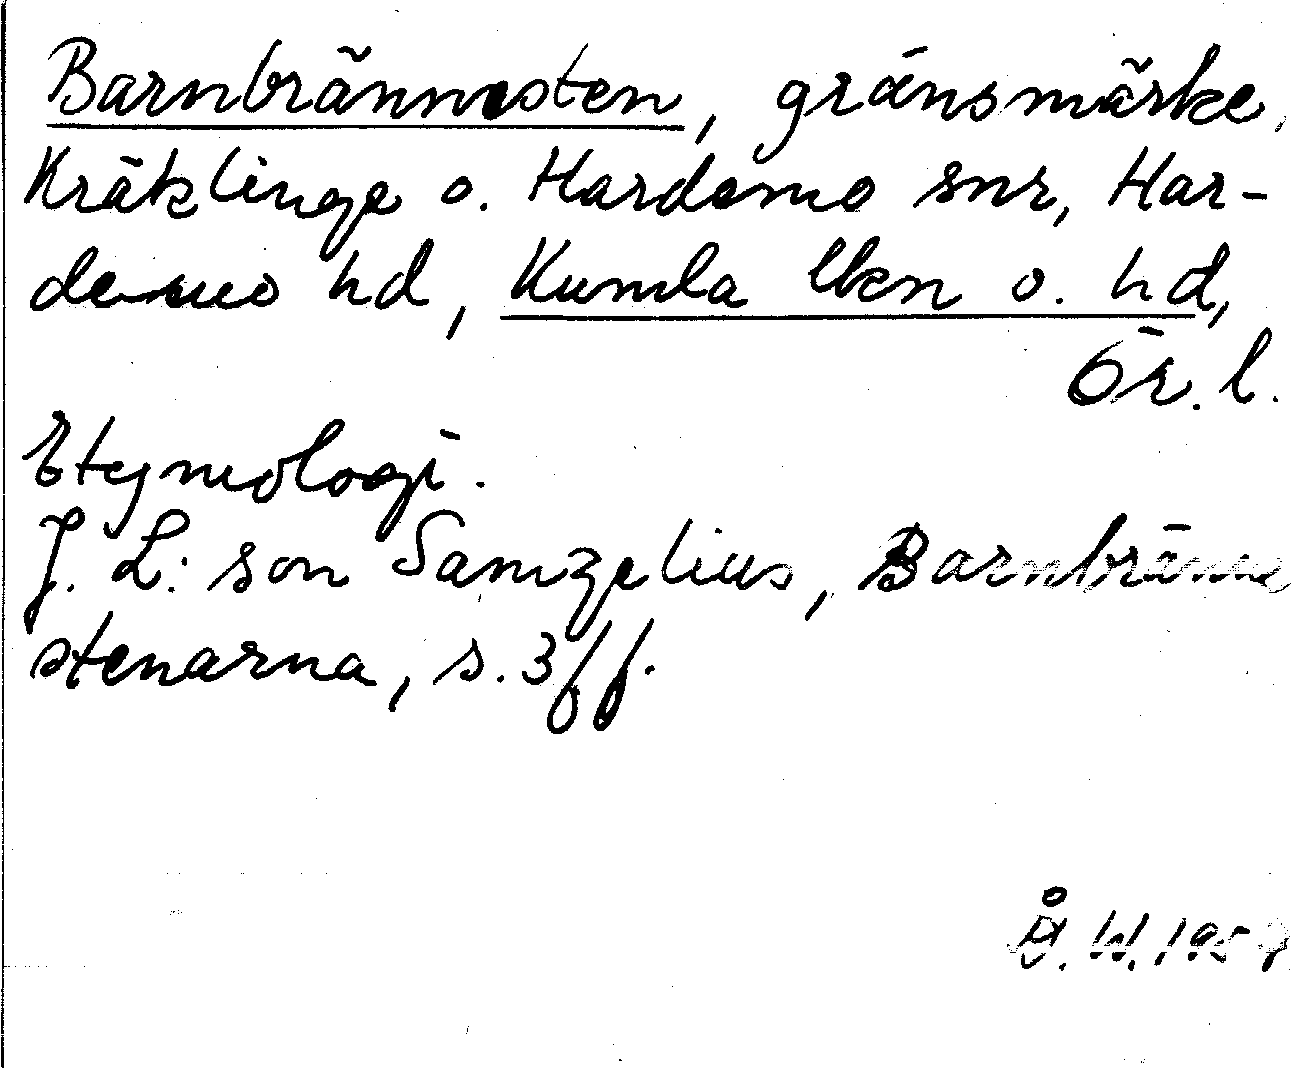 Barnbrännesten, gränsmärke,
Kräklinge o. Hardemo snr, Har-
demo hd, Kumla lkn o. hd,
Ör. l.
Etymologi.
J. L:son Samzelius, Barnbränne
stenarna, s. 3 ff.
Å. W. 195